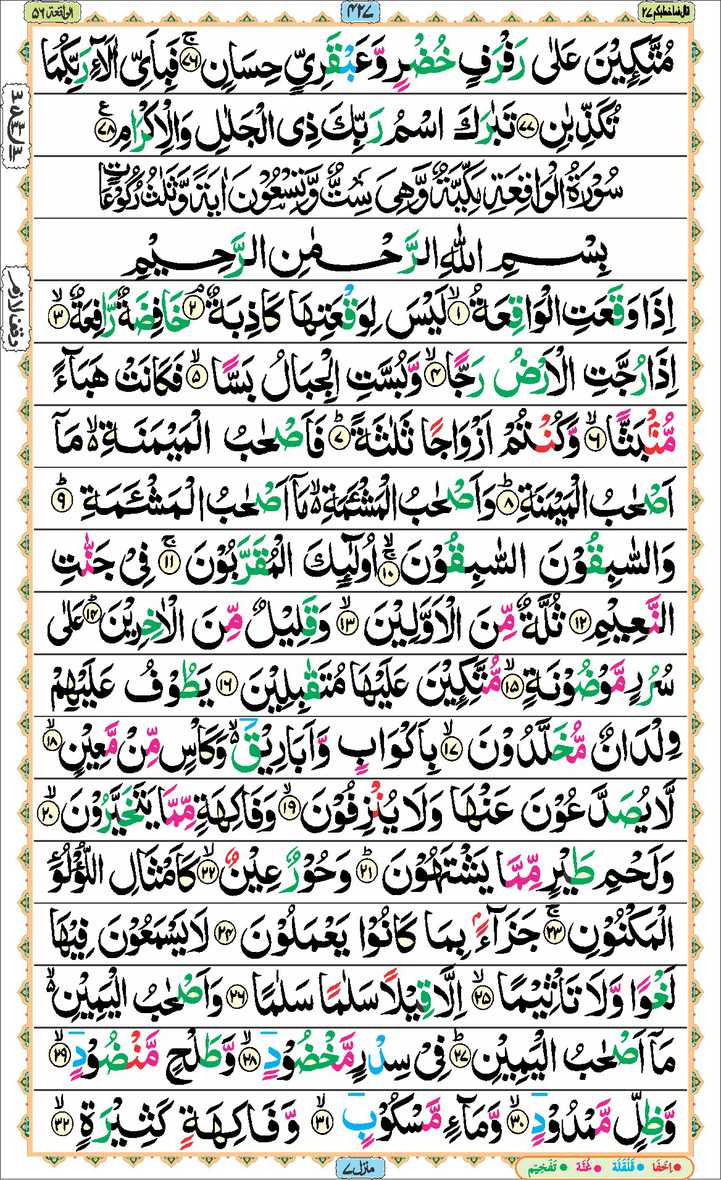 قال فما خطبكم ٢٧ ٤٢٧ الواقعة ٥٦
مُتَّكِـِٕیْنَ عَلٰى رَفْرَفٍ خُضْرٍ وَّعَبْقَرِیٍّ حِسَانٍۚ۝۷۶ فَبِاَیِّ اٰلَآءِ رَبِّكُمَا
تُكَذِّبٰنِ۝۷۷ تَبٰرَكَ اسْمُ رَبِّكَ ذِی الْجَلٰلِ وَالْاِكْرَامِ۠۝۷۸
سُوْرَةُ الْوَاقِعَةِ مَكِّیَّةٌ وَّهِیَ سِتٌّ وَّتِسْعُوْنَ اٰیَةً وَّثَلٰثُ رُكُوْعَاتٍ
بِسْمِ اللّٰهِ الرَّحْمٰنِ الرَّحِیْمِ
اِذَا وَقَعَتِ الْوَاقِعَةُۙ۝۱ لَیْسَ لِوَقْعَتِهَا كَاذِبَةٌۘ۝۲ خَافِضَةٌ رَّافِعَةٌۙ۝۳
اِذَا رُجَّتِ الْاَرْضُ رَجًّاۙ۝۴ وَّبُسَّتِ الْجِبَالُ بَسًّاۙ۝۵ فَكَانَتْ هَبَآءً
مُّنْۢبَثًّاۙ۝۶ وَّكُنْتُمْ اَزْوَاجًا ثَلٰثَةًؕ۝۷ فَاَصْحٰبُ الْمَیْمَنَةِ۬ۙ مَاۤ
اَصْحٰبُ الْمَیْمَنَةِؕ۝۸ وَاَصْحٰبُ الْمَشْـَٔمَةِ۬ۙ مَاۤ اَصْحٰبُ الْمَشْـَٔمَةِؕ۝۹
وَالسّٰبِقُوْنَ السّٰبِقُوْنَۚۙ۝۱۰ اُولٰٓىِٕكَ الْمُقَرَّبُوْنَۚ۝۱۱ فِیْ جَنّٰتِ
النَّعِیْمِ۝۱۲ ثُلَّةٌ مِّنَ الْاَوَّلِیْنَۙ۝۱۳ وَقَلِیْلٌ مِّنَ الْاٰخِرِیْنَؕ۝۱۴ عَلٰى
سُرُرٍ مَّوْضُوْنَةٍۙ۝۱۵ مُّتَّكِـِٕیْنَ عَلَیْهَا مُتَقٰبِلِیْنَ۝۱۶ یَطُوْفُ عَلَیْهِمْ
وِلْدَانٌ مُّخَلَّدُوْنَۙ۝۱۷ بِاَكْوَابٍ وَّاَبَارِیْقَ۬ۙ وَكَاْسٍ مِّنْ مَّعِیْنٍۙ۝۱۸
لَّا یُصَدَّعُوْنَ عَنْهَا وَلَا یُنْزِفُوْنَۙ۝۱۹ وَفَاكِهَةٍ مِّمَّا یَتَخَیَّرُوْنَۙ۝۲۰
وَلَحْمِ طَیْرٍ مِّمَّا یَشْتَهُوْنَؕ۝۲۱ وَحُوْرٌ عِیْنٌۙ۝۲۲ كَاَمْثَالِ اللُّؤْلُؤِ
الْمَكْنُوْنِۚ۝۲۳ جَزَآءًۢ بِمَا كَانُوْا یَعْمَلُوْنَ۝۲۴ لَا یَسْمَعُوْنَ فِیْهَا
لَغْوًا وَّلَا تَاْثِیْمًاۙ۝۲۵ اِلَّا قِیْلًا سَلٰمًا سَلٰمًا۝۲۶ وَاَصْحٰبُ الْیَمِیْنِ۬ۙ
مَاۤ اَصْحٰبُ الْیَمِیْنِؕ۝۲۷ فِیْ سِدْرٍ مَّخْضُوْدٍۙ۝۲۸ وَّطَلْحٍ مَّنْضُوْدٍۙ۝۲۹
وَّظِلٍّ مَّمْدُوْدٍۙ۝۳۰ وَّمَآءٍ مَّسْكُوْبٍۙ۝۳۱ وَّفَاكِهَةٍ كَثِیْرَةٍۙ۝۳۲
اِخْفَا قَلْقَلَة غُنَّة تَفْخِیْم
منزل ٧